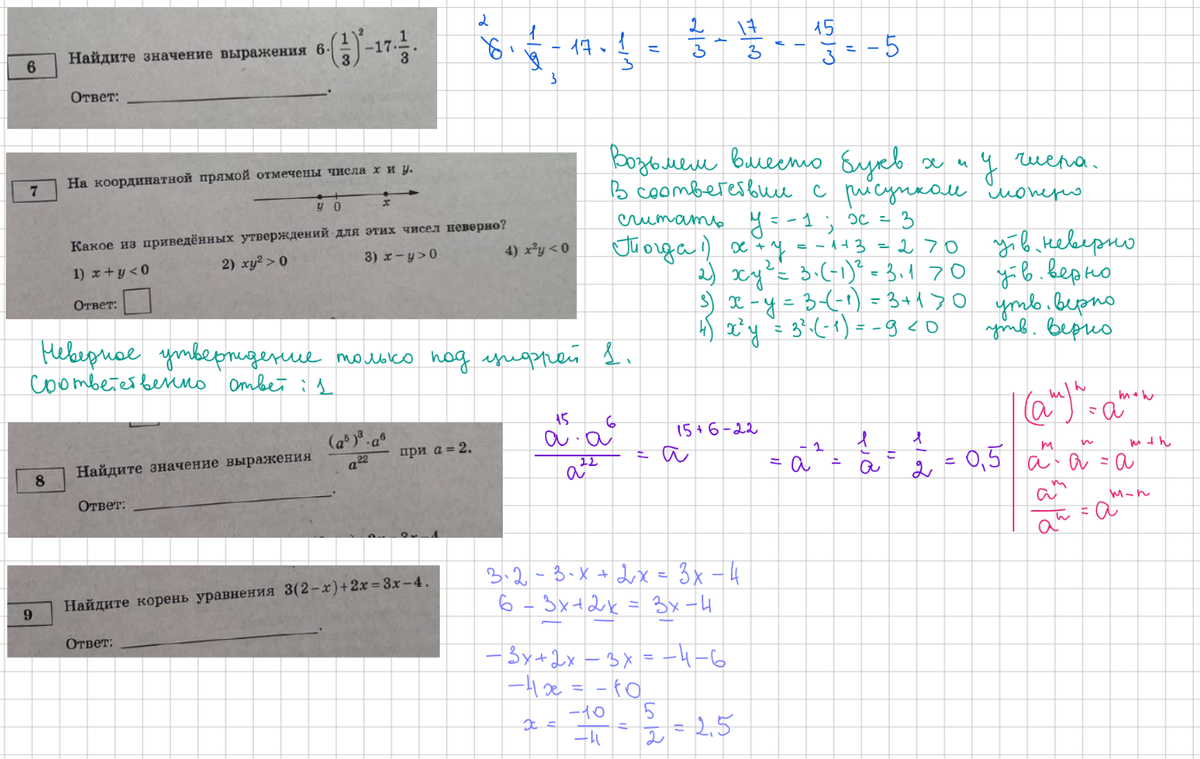 6 Найдите значение выражения 6·(1/3)²−17·1/3.
Ответ:
6 · 1/9 − 17 · 1/3 = 2/3 − 17/3 = − 15/3 = −5
2
3
7 На координатной прямой отмечены числа x и y.
y 0 x
Какое из приведённых утверждений для этих чисел неверно?
1) x+y<0 2) xy²>0 3) x−y>0 4) x²y<0
Ответ:
Возьмем вместо букв x и y числа.
В соответствии с рисунком можно
считать y = −1 ; x = 3
Тогда 1) x+y = −1+3 = 2 > 0 утв. неверно
2) xy² = 3·(−1)² = 3·1 > 0 утв. верно
3) x−y = 3−(−1) = 3+1 > 0 утв. верно
4) x²y = 3²·(−1) = −9 < 0 утв. верно
Неверное утверждение только под цифрой 1.
Соответственно ответ : 1
8 Найдите значение выражения (a⁵)³·a⁶/a²² при a=2.
Ответ:
a¹⁵·a⁶/a²² = a¹⁵⁺⁶⁻²² = a⁻² = 1/a = 1/2 = 0,5
(aᵐ)ⁿ = aᵐ⁺ⁿ
aᵐ·aⁿ = aᵐ⁺ⁿ
aᵐ/aⁿ = aᵐ⁻ⁿ
9 Найдите корень уравнения 3(2−x)+2x=3x−4.
Ответ:
3·2 − 3·x + 2x = 3x − 4
6 − 3x + 2x = 3x − 4
−3x+2x − 3x = −4−6
−4x = −10
x = −10/−4 = 5/2 = 2,5